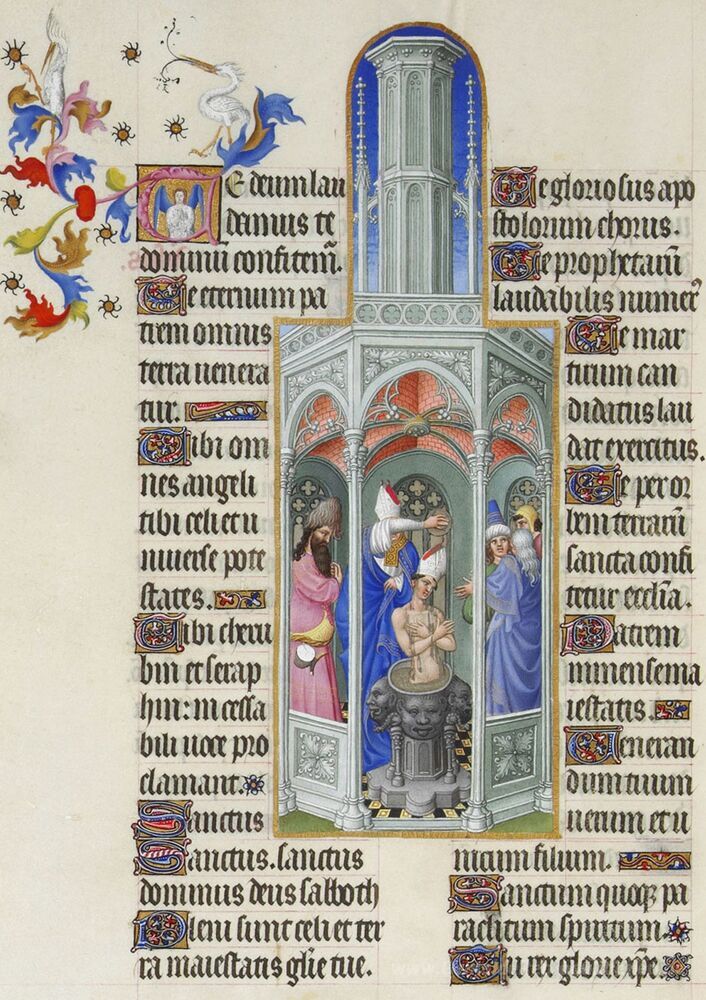 Te deum lau
damus te
dominum confitem̃.
Te eternum pa
trem omnis
terra uenera
tur.
Tibi om
nes angeli
tibi celi et u
niuerse pote
states.
Tibi cheru
bin et serap
hin: incessa
bili uoce pro
clamant.
Sanctus
Sanctus. sanctus
dominus deus sabboth
Pleni sunt celi et ter
ra maiestatis gl̃ie tue.
Te gloriosus apo
stolorum chorus.
Te prophetarũ
laudabilis numer᾽
Te mar
tirum can
didatus lau
dat exercitus.
Te per or
bem terrarũ
sancta confi
tetur eccl̃ia.
Patrem
inmense ma
iestatis.
Ueneran
dum tuum
uerum et u
nicum filium.
Sanctum quoqꝫ pa
raclitum spiritum.
Tu rex glorie xp̃e.